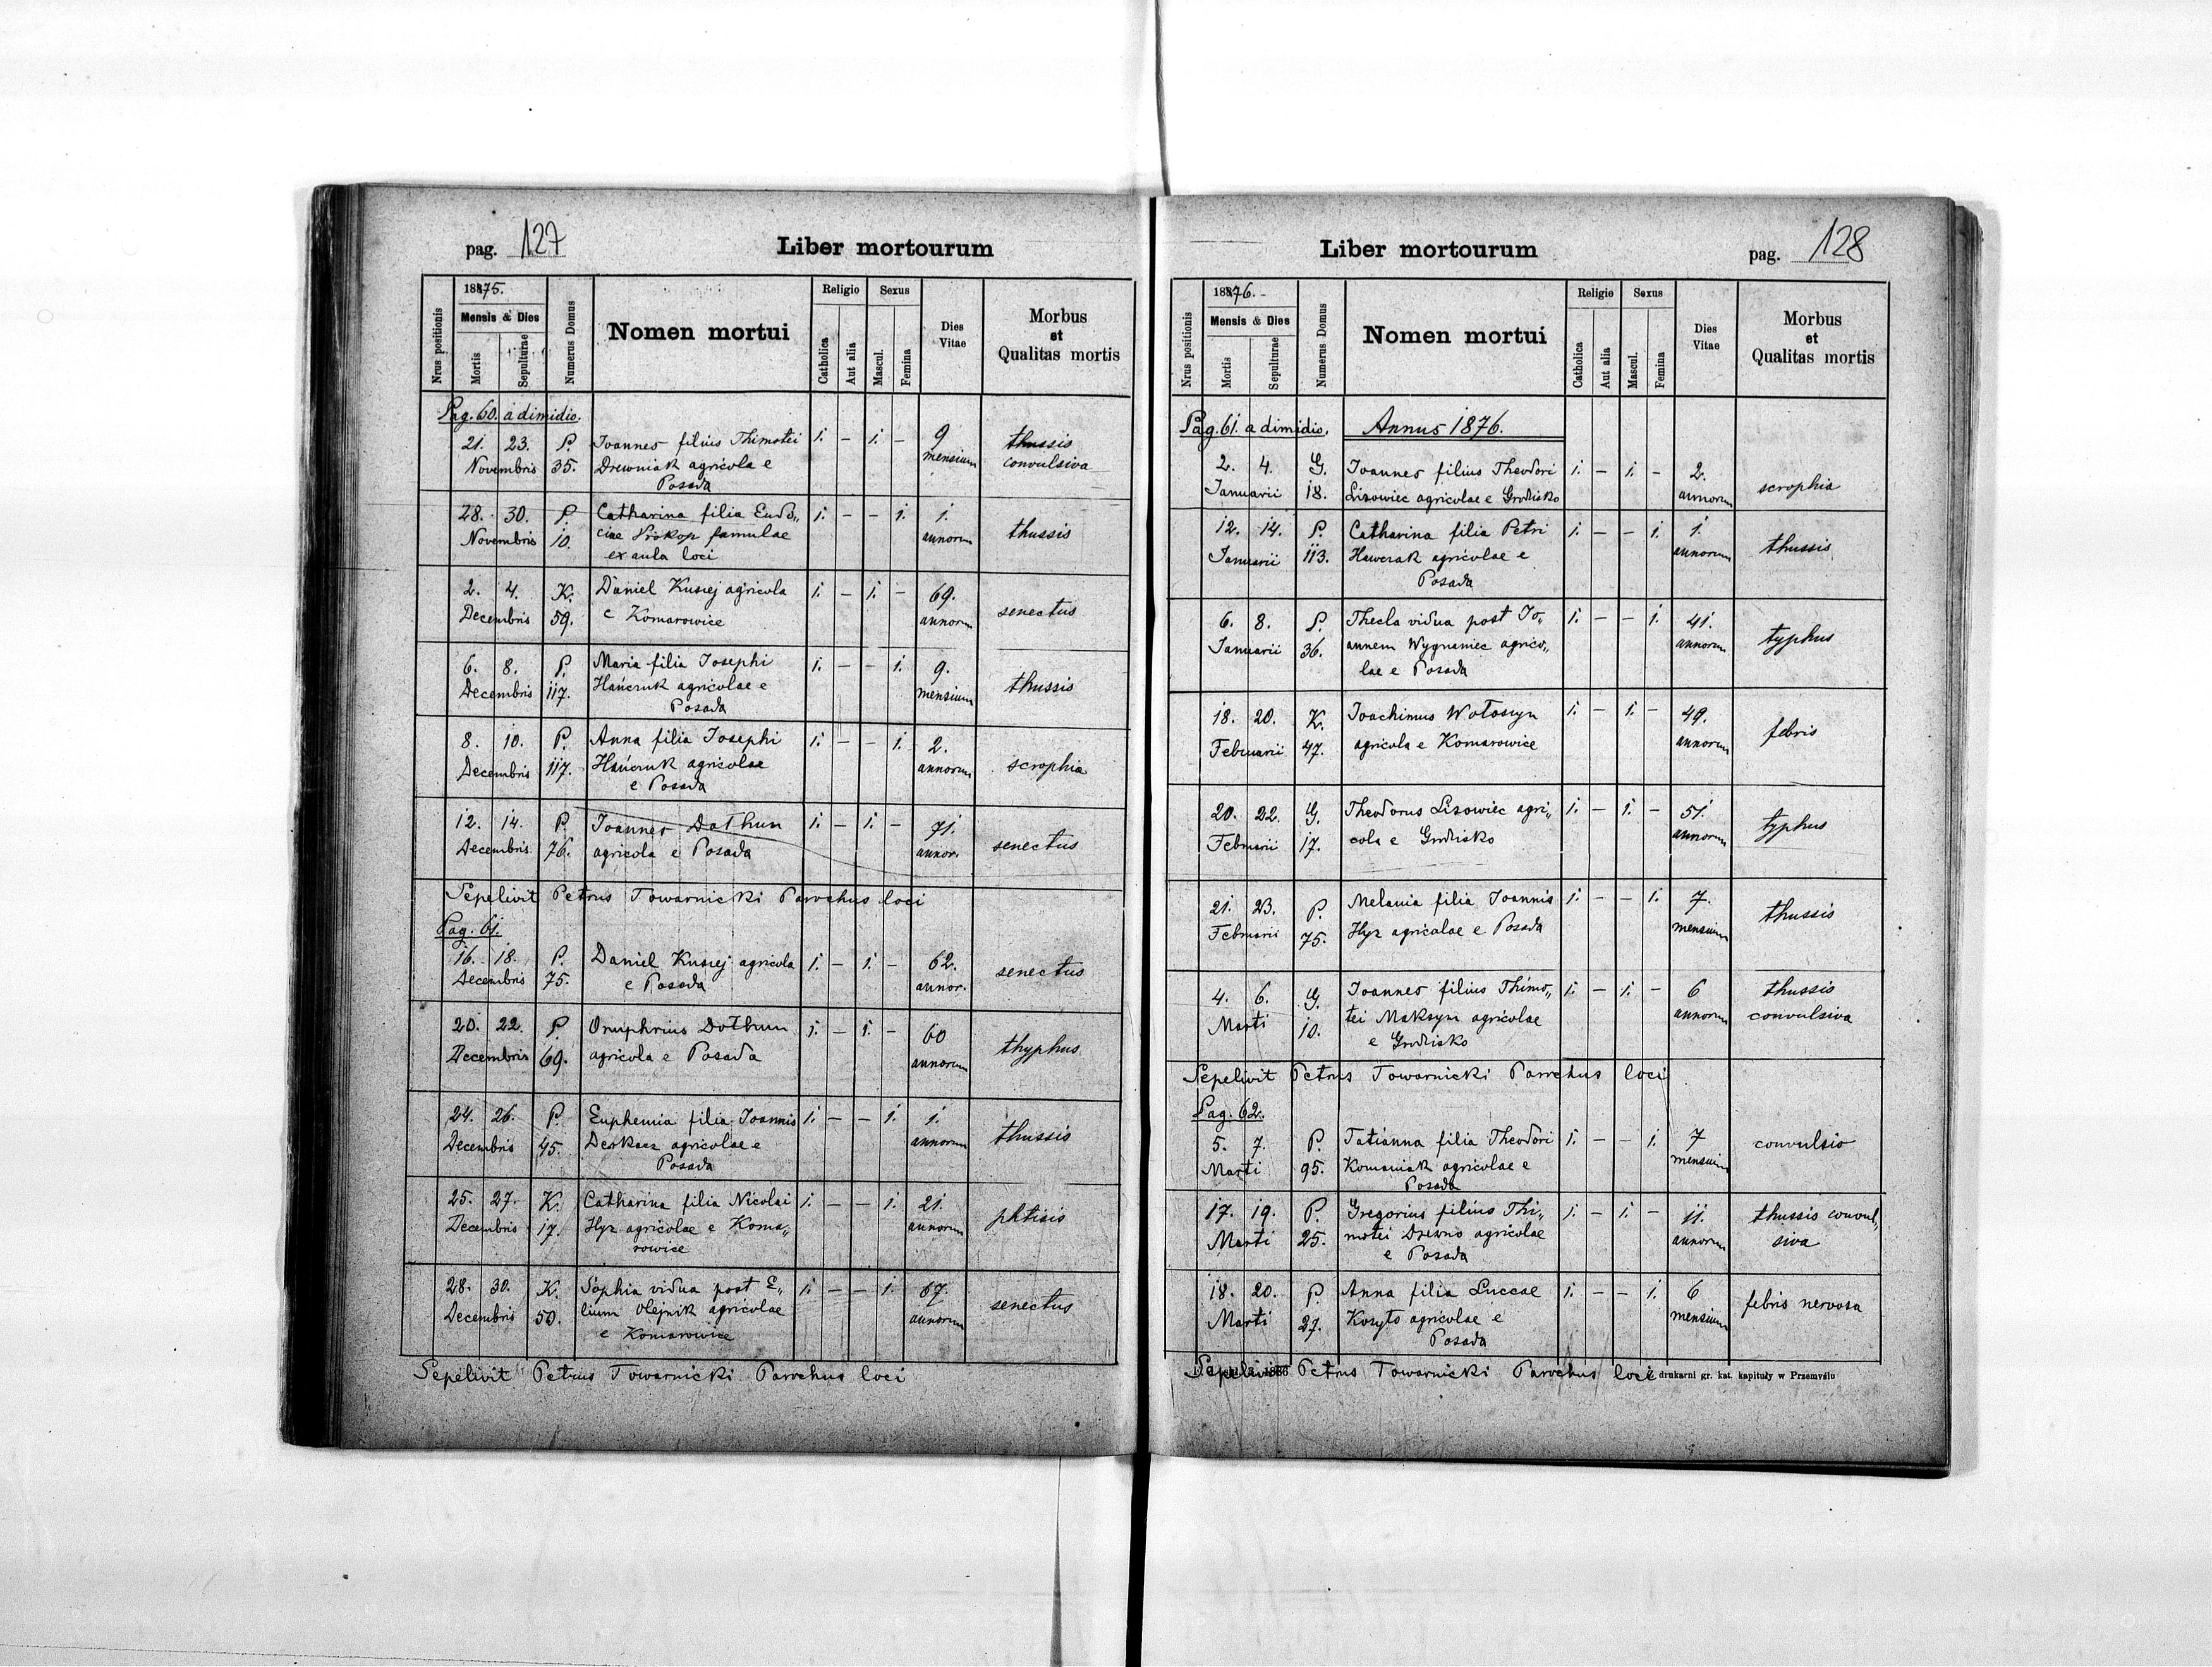 pag. 127
Liber mortourum
1875.
Mensis & Dies
Nrus positionis
Mortis
Sepulturae
Numerus Domus
Nomen mortui
Religio
Catholica
Aut alia
Sexus
Mascul.
Femina
Dies
Vitae
Morbus
et
Qualitas mortis
Pag. 60. a dimidio.
21. 23. P. Joannes filius Thimotei 1. – 1. – 9 thussis
Novembris 35. Drewniak agricola e mensium convulsiva
Posada
28. 30. P. Catharina filia Eudo„ 1. – – 1. 1.
Novembris 10. ciae Prokop famulae annorum thussis
ex aula loci
2. 4. K. Daniel Kusiej agricola 1. – 1. – 69.
Decembris 59. e Komarowice annorum senectus
6. 8. P. Maria filia Josephi 1. – – 1. 9.
Decembris 117. Hańczuk agricolae e mensium thussis
Posada
8. 10. P. Anna filia Josephi 1. – – 1. 2.
Decembris 117. Hańczuk agricolae annorum scrophia
e Posada
12. 14. P. Joannes Dothun 1. – 1. – 71.
Decembris 76. agricola e Posada annor. senectus
Sepelivit Petrus Towarnicki Parochus loci
Pag. 61.
16. 18. P. Daniel Kusiej agricola 1. – 1. – 62.
Decembris 75. e Posada annor. senectus
20. 22. P. Onuphrius Dothun 1. – 1. – 60
Decembris 69. agricola e Posada annorum thyphus
24. 26. P. Euphemia filia Joannis 1. – – 1. 1.
Decembris 45. Deskacz agricolae e annorum thussis
Posada
25. 27. K. Catharina filia Nicolai 1. – – 1. 21.
Decembris 17. Hyz agricolae e Koma„ annorum phtisis
rowice
28. 30. K. Sophia vidua post E„ 1. – – 1. 67.
Decembris 50. lium Olejnik agricolae annorum senectus
e Komarowice
Sepelivit Petrus Towarnicki Parochus loci
Liber mortourum
pag. 128
1876.
Mensis & Dies
Nrus positionis
Mortis
Sepulturae
Numerus Domus
Nomen mortui
Religio
Catholica
Aut alia
Sexus
Mascul.
Femina
Dies
Vitae
Morbus
et
Qualitas mortis
Pag. 61. a dimidio. Annus 1876.
2. 4. G. Joannes filius Theodori 1. – 1. – 2.
Januarii 18. Lisowiec agricolae e Grodzisko annorum scrophia
12. 14. P. Catharina filia Petri 1. – – 1. 1.
Januarii 113. Hawczak agricolae e annorum thussis
Posada
6. 8. P. Thecla vidua post Jo„ 1. – – 1. 41.
Januarii 36. annem Wygnaniec agrico„ annorum typhus
lae e Posada
18. 20. K. Joachimus Wołoszyn 1. – 1. – 49.
Februarii 47. agricola e Komarowice annorum febris
20. 22. G. Theodorus Lisowiec agri„ 1. – 1. – 51.
Februarii 17. cola e Grodzisko annorum typhus
21. 23. P. Melania filia Joannis 1. – – 1. 7.
Februarii 75. Hyz agricolae e Posada mensium thussis
4. 6. G. Joannes filius Thimo„ 1. – 1. – 6 thussis
Marti 10. tei Maksym agricolae annorum convulsiva
e Grodzisko
Sepelivit Petrus Towarnicki Parochus loci
Pag. 62.
5. 7. P. Tatianna filia Theodori 1. – – 1. 7 convulsio
Marti 95. Komaniak agricolae e mensium
Posada
17. 19. P. Gregorius filius Thi„ 1. – 1. – 11. thussis convul„
Marti 25. motei Drewno agricolae annorum siva
e Posada
18. 20. P. Anna filia Luccae 1. – – 1. 6 febris nervosa
Marti 27. Kosyto agricolae e mensium
Posada
Sepelivit Petrus Towarnicki Parochus loci drukarni gr. kat. kapituły w Przemyślu